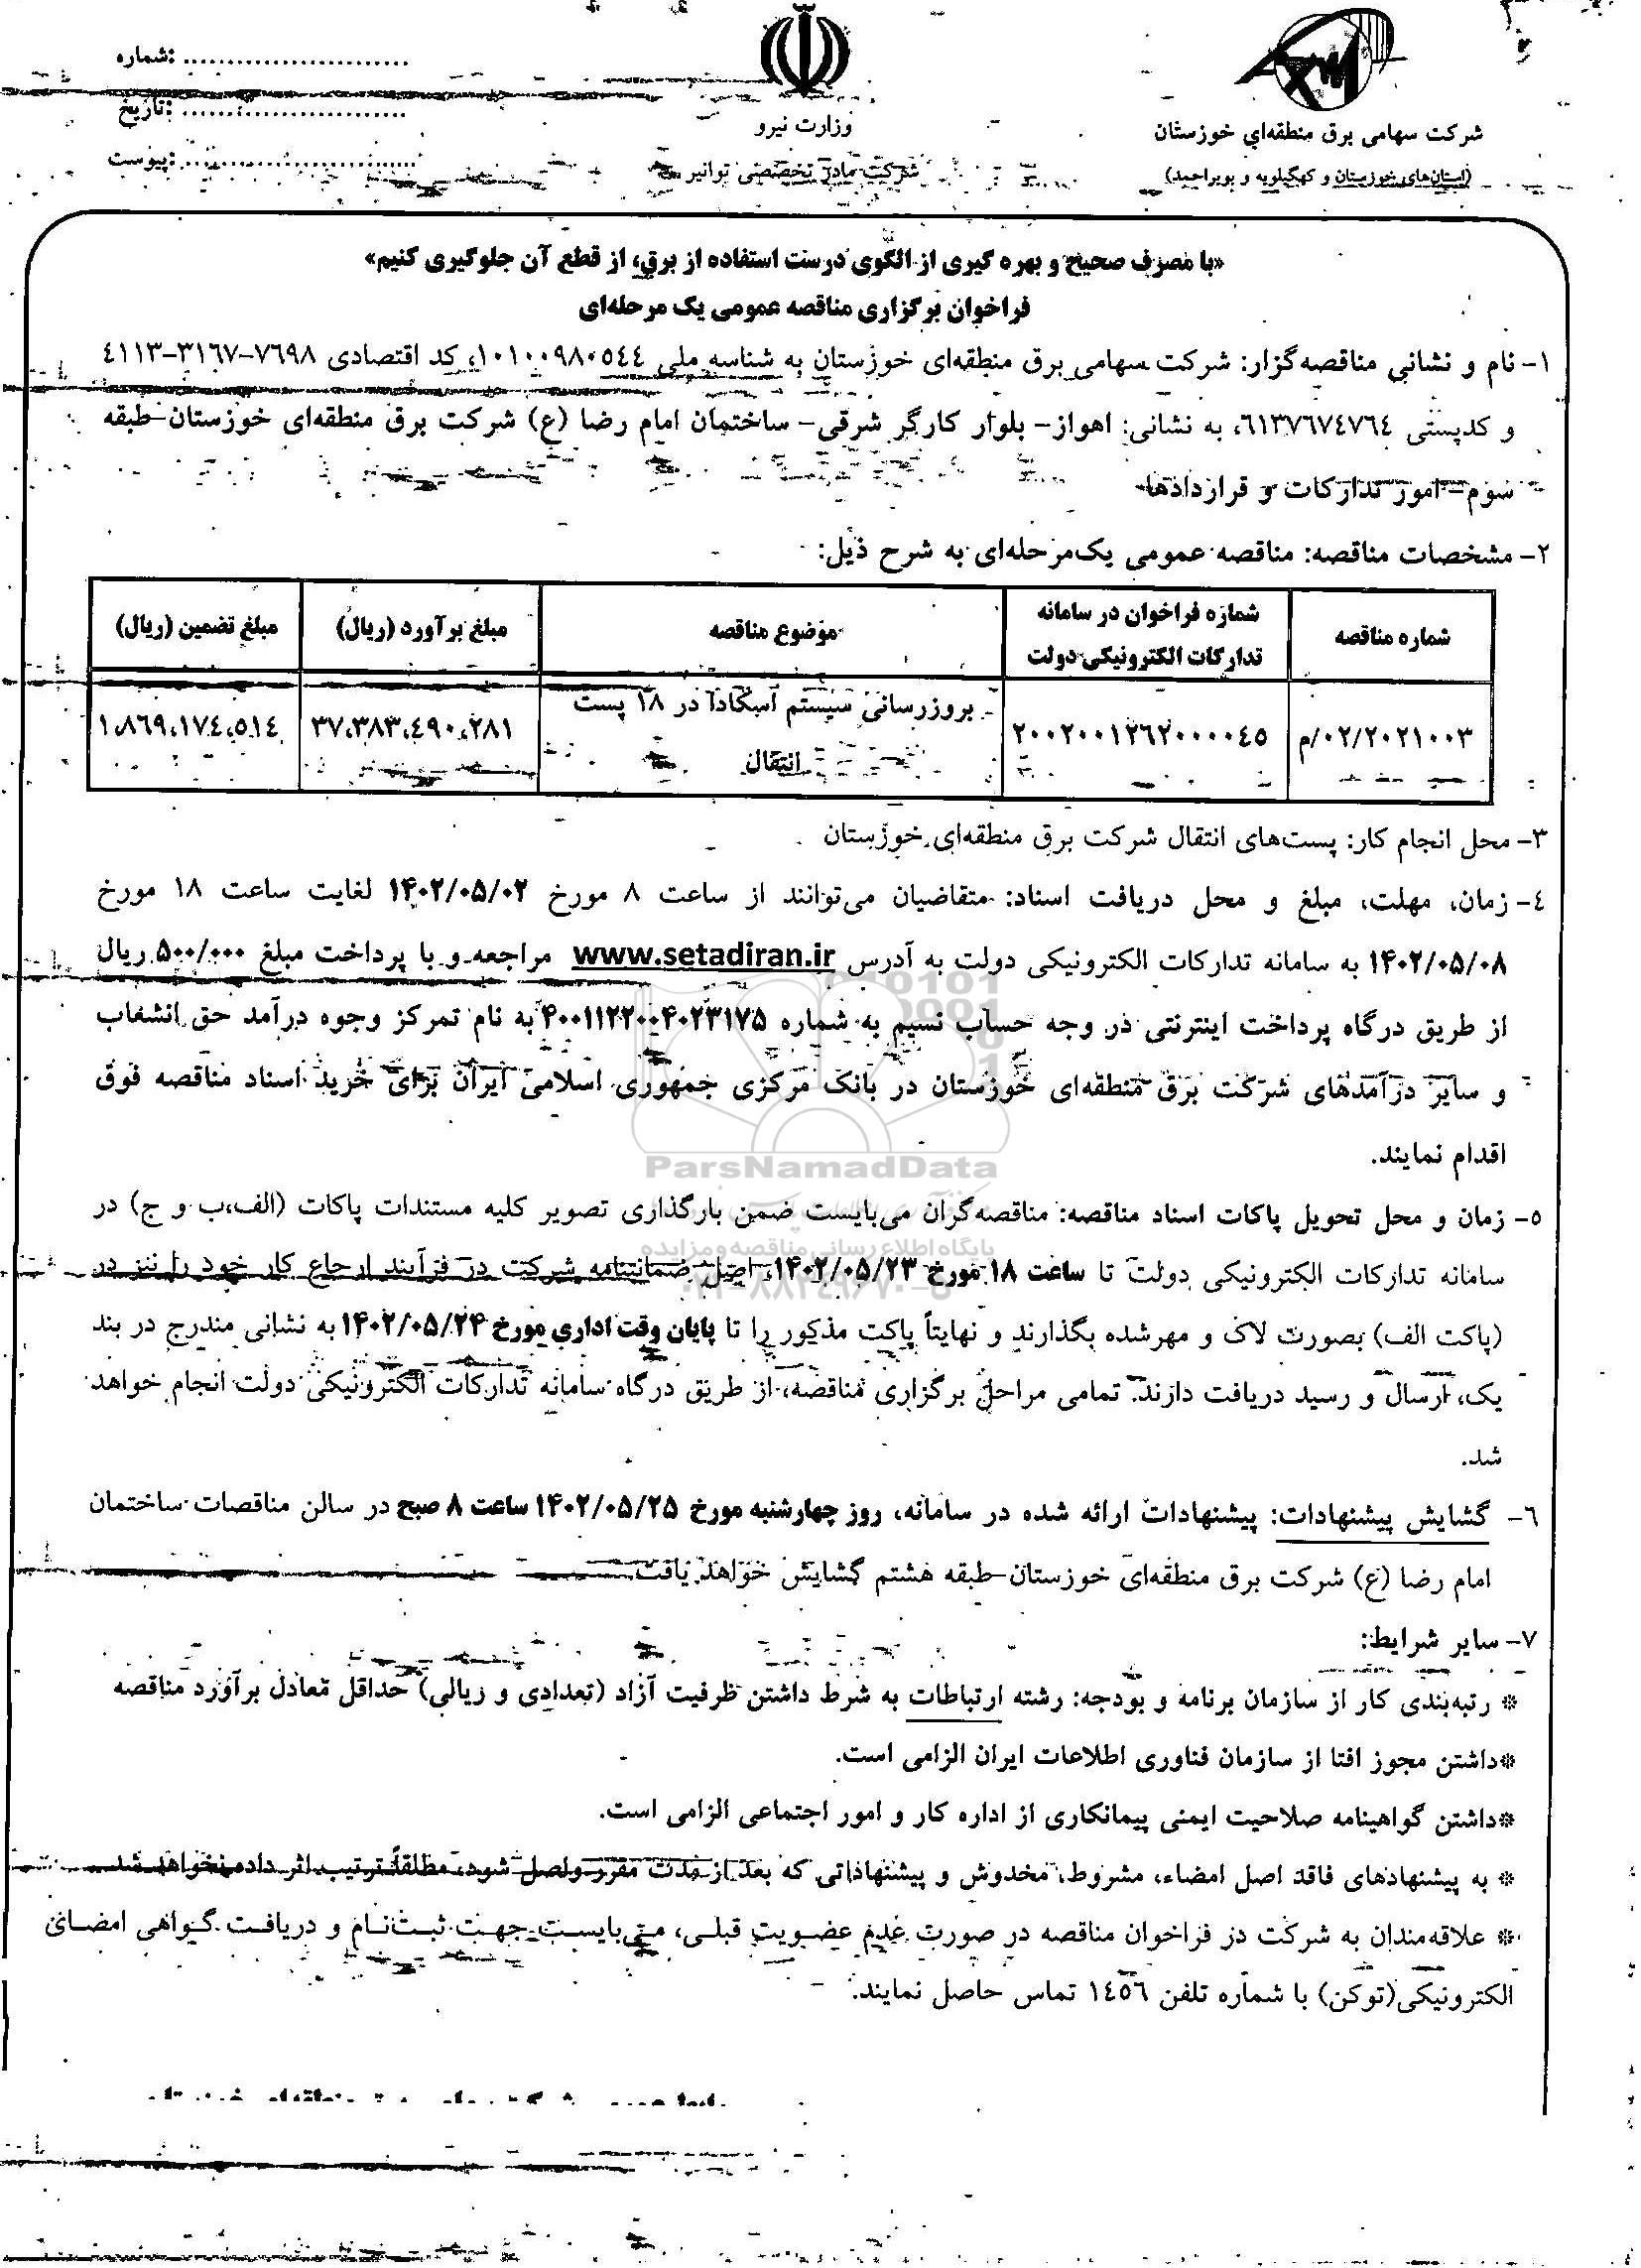 شماره: ..........................
تاریخ: ..........................
پیوست: ..........................
وزارت نیرو
شرکت مادر تخصصی توانیر
شرکت سهامی برق منطقه‌ای خوزستان
(استان‌های خوزستان و کهگیلویه و بویراحمد)
«با مصرف صحیح و بهره گیری از الگوی درست استفاده از برق، از قطع آن جلوگیری کنیم»
فراخوان برگزاری مناقصه عمومی یک مرحله‌ای
۱- نام و نشانی مناقصه‌گزار: شرکت سهامی برق منطقه‌ای خوزستان به شناسه ملی ۱۰۱۰۰۹۸۰۵٤٤، کد اقتصادی ۷۶۹۸-۳۱۶۷-٤۱۱۳
و کدپستی ۶۱۳۷۶۷٤۷۶٤، به نشانی: اهواز- بلوار کارگر شرقی- ساختمان امام رضا (ع) شرکت برق منطقه‌ای خوزستان-طبقه
سوم- امور تدارکات و قراردادها
۲- مشخصات مناقصه: مناقصه عمومی یک‌مرحله‌ای به شرح ذیل:
شماره مناقصه
شماره فراخوان در سامانه
تدارکات الکترونیکی دولت
موضوع مناقصه
مبلغ برآورد (ریال)
مبلغ تضمین (ریال)
۰۲/۲۰۲۱۰۰۳/م
۲۰۰۲۰۰۱۲۶۲۰۰۰۰٤۵
بروزرسانی سیستم اسکادا در ۱۸ پست
انتقال
۳۷،۳۸۳،٤۹۰،۲۸۱
۱،۸۶۹،۱۷٤،۵۱٤
۳- محل انجام کار: پست‌های انتقال شرکت برق منطقه‌ای خوزستان
٤- زمان، مهلت، مبلغ و محل دریافت اسناد: متقاضیان می‌توانند از ساعت ۸ مورخ ۱۴۰۲/۰۵/۰۲ لغایت ساعت ۱۸ مورخ
۱۴۰۲/۰۵/۰۸ به سامانه تدارکات الکترونیکی دولت به آدرس www.setadiran.ir مراجعه و با پرداخت مبلغ ۵۰۰/۰۰۰ ریال
از طریق درگاه پرداخت اینترنتی در وجه حساب نسیم به شماره ۴۰۰۱۱۲۲۰۰۴۰۲۳۱۷۵ به نام تمرکز وجوه درآمد حق انشعاب
و سایر درآمدهای شرکت برق منطقه‌ای خوزستان در بانک مرکزی جمهوری اسلامی ایران برای خرید اسناد مناقصه فوق
اقدام نمایند.
ParsNamadData
۵- زمان و محل تحویل پاکات اسناد مناقصه: مناقصه‌گران می‌بایست ضمن بارگذاری تصویر کلیه مستندات پاکات (الف،ب و ج) در
پایگاه اطلاع رسانی مناقصه و مزایده
سامانه تدارکات الکترونیکی دولت تا ساعت ۱۸ مورخ ۱۴۰۲/۰۵/۲۳، اصل ضمانتنامه شرکت در فرآیند ارجاع کار خود را نیز در
(پاکت الف) بصورت لاک و مهرشده بگذارند و نهایتاً پاکت مذکور را تا پایان وقت اداری مورخ ۱۴۰۲/۰۵/۲۴ به نشانی مندرج در بند
یک، ارسال و رسید دریافت دارند. تمامی مراحل برگزاری مناقصه، از طریق درگاه سامانه تدارکات الکترونیکی دولت انجام خواهد
شد.
۶- گشایش پیشنهادات: پیشنهادات ارائه شده در سامانه، روز چهارشنبه مورخ ۱۴۰۲/۰۵/۲۵ ساعت ۸ صبح در سالن مناقصات ساختمان
امام رضا (ع) شرکت برق منطقه‌ای خوزستان-طبقه هشتم گشایش خواهد یافت.
۷- سایر شرایط:
* رتبه‌بندی کار از سازمان برنامه و بودجه: رشته ارتباطات به شرط داشتن ظرفیت آزاد (تعدادی و ریالی) حداقل معادل برآورد مناقصه
*داشتن مجوز افتا از سازمان فناوری اطلاعات ایران الزامی است.
*داشتن گواهینامه صلاحیت ایمنی پیمانکاری از اداره کار و امور اجتماعی الزامی است.
* به پیشنهادهای فاقد اصل امضاء، مشروط، مخدوش و پیشنهاداتی که بعد از مدت مقرر واصل شود، مطلقاً ترتیب اثر داده نخواهد شد.
* علاقه‌مندان به شرکت در فراخوان مناقصه در صورت عدم عضویت قبلی، می‌بایست جهت ثبت‌نام و دریافت گواهی امضای
الکترونیکی(توکن) با شماره تلفن ۱٤۵۶ تماس حاصل نمایند.